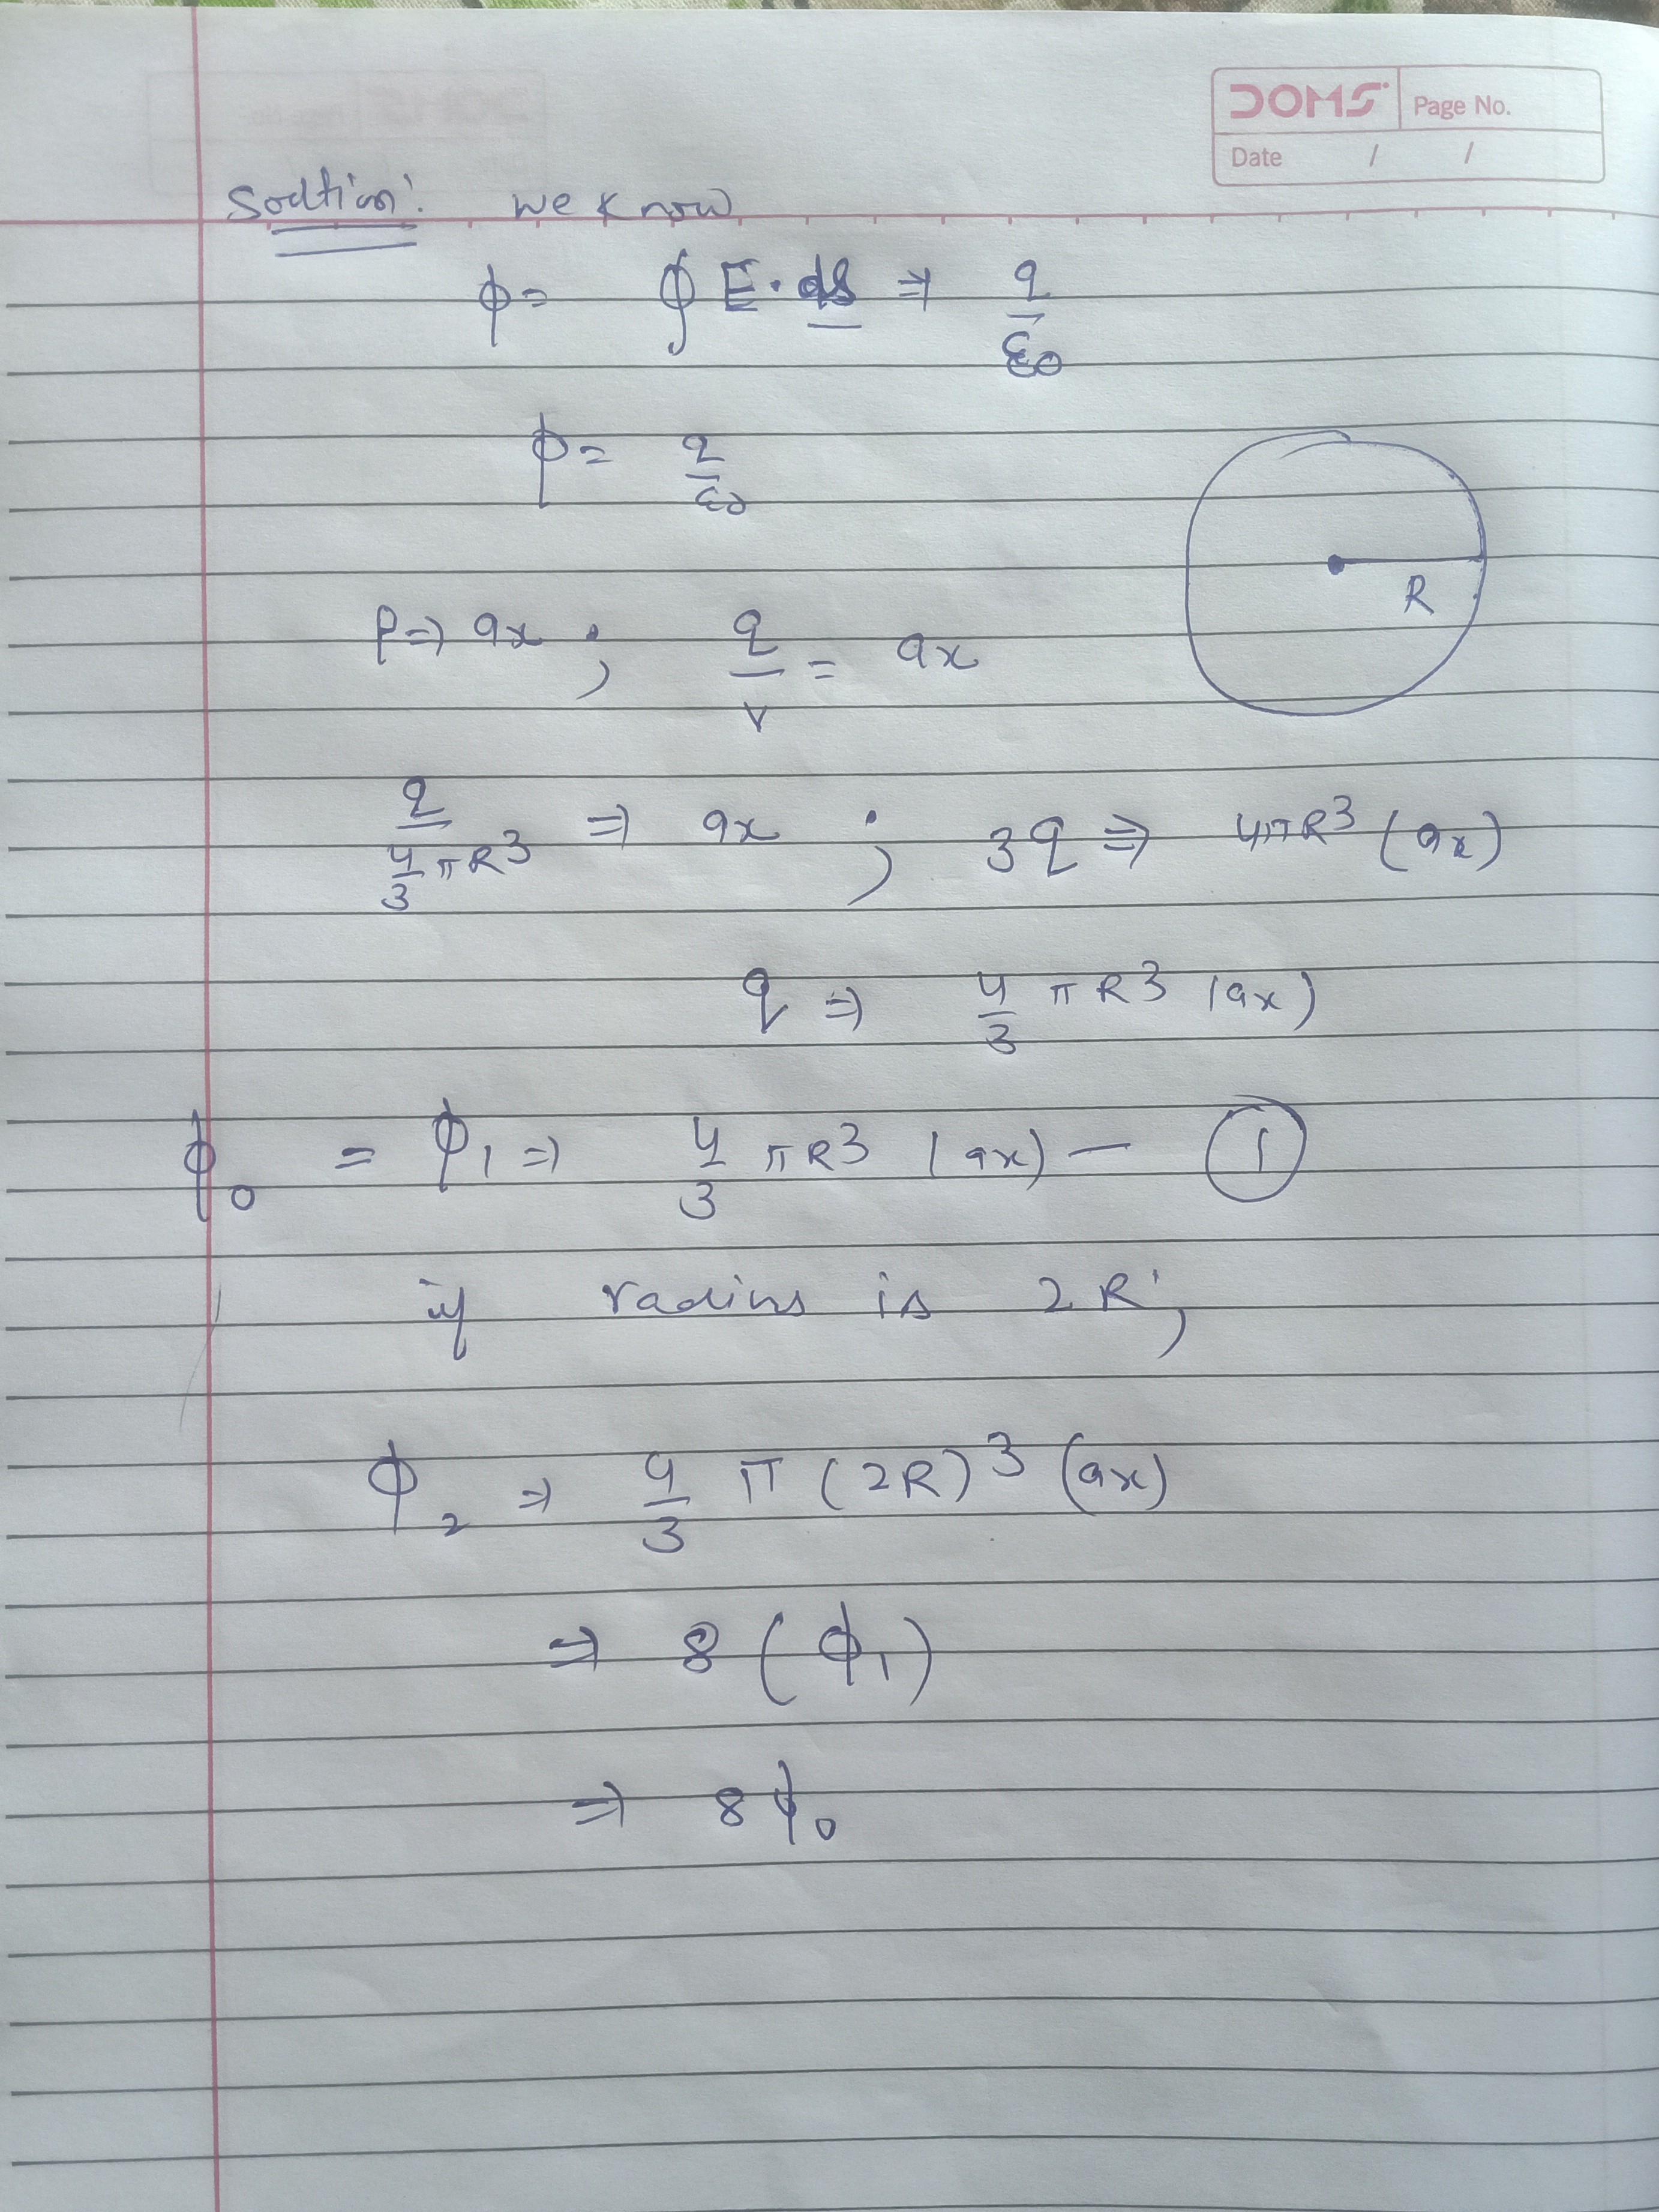 DOMS Page No.
Date / /
Soltion: We know
ϕ = ∮ E. ds ⇒ q/ε0
ϕ = q/ε0
R
ρ ⇒ ax ; q/V = ax
q/(4/3 πR³) ⇒ ax ; 3q ⇒ 4πR³ (ax)
q ⇒ 4/3 πR³ (ax)
ϕ₀ = ϕ₁ ⇒ 4/3 πR³ (ax) — ①
if radius is 2R ;
ϕ₂ ⇒ 4/3 π (2R)³ (ax)
⇒ 8 (ϕ₁)
⇒ 8ϕ₀